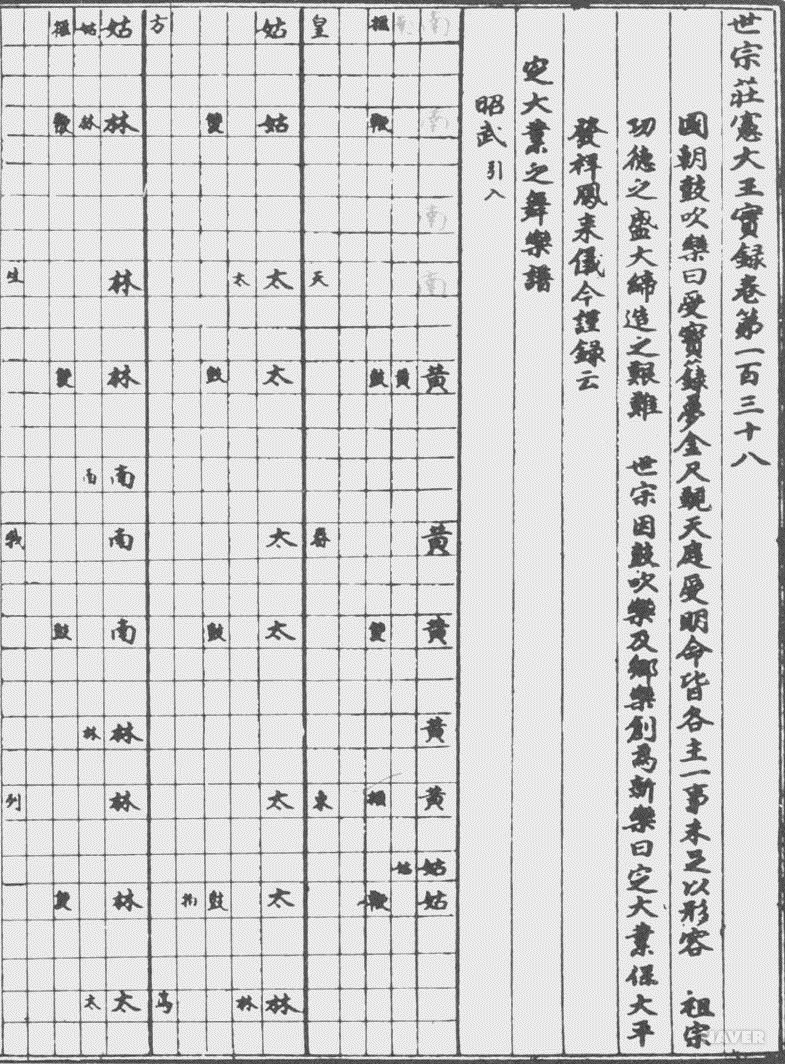 世宗莊憲大王實錄卷第一百三十八
國朝鼓吹樂曰受寶籙夢金尺覲天庭受明命皆各主一事未足以形容 祖宗
功德之盛大締造之艱難 世宗因鼓吹樂及鄕樂創爲新樂曰定大業保大平
發祥鳳來儀今謹錄云
定大業之舞樂譜
昭武 引入
南 南 南 南 黃 黃 黃 黃 黃 姑 姑
南 黃 姑
搖 鞭 鼓 雙 搖 鞭
皇 天 眷 東
姑 姑 太 太 太 太 太 太 林
太 林
雙 鼓 鼓 鼓
拍
方 篤
姑 林 林 林 南 南 南 林 林 林 太
姑 林 南 林 太
搖 鞭 雙 鼓 雙
生 我 列
NAVER